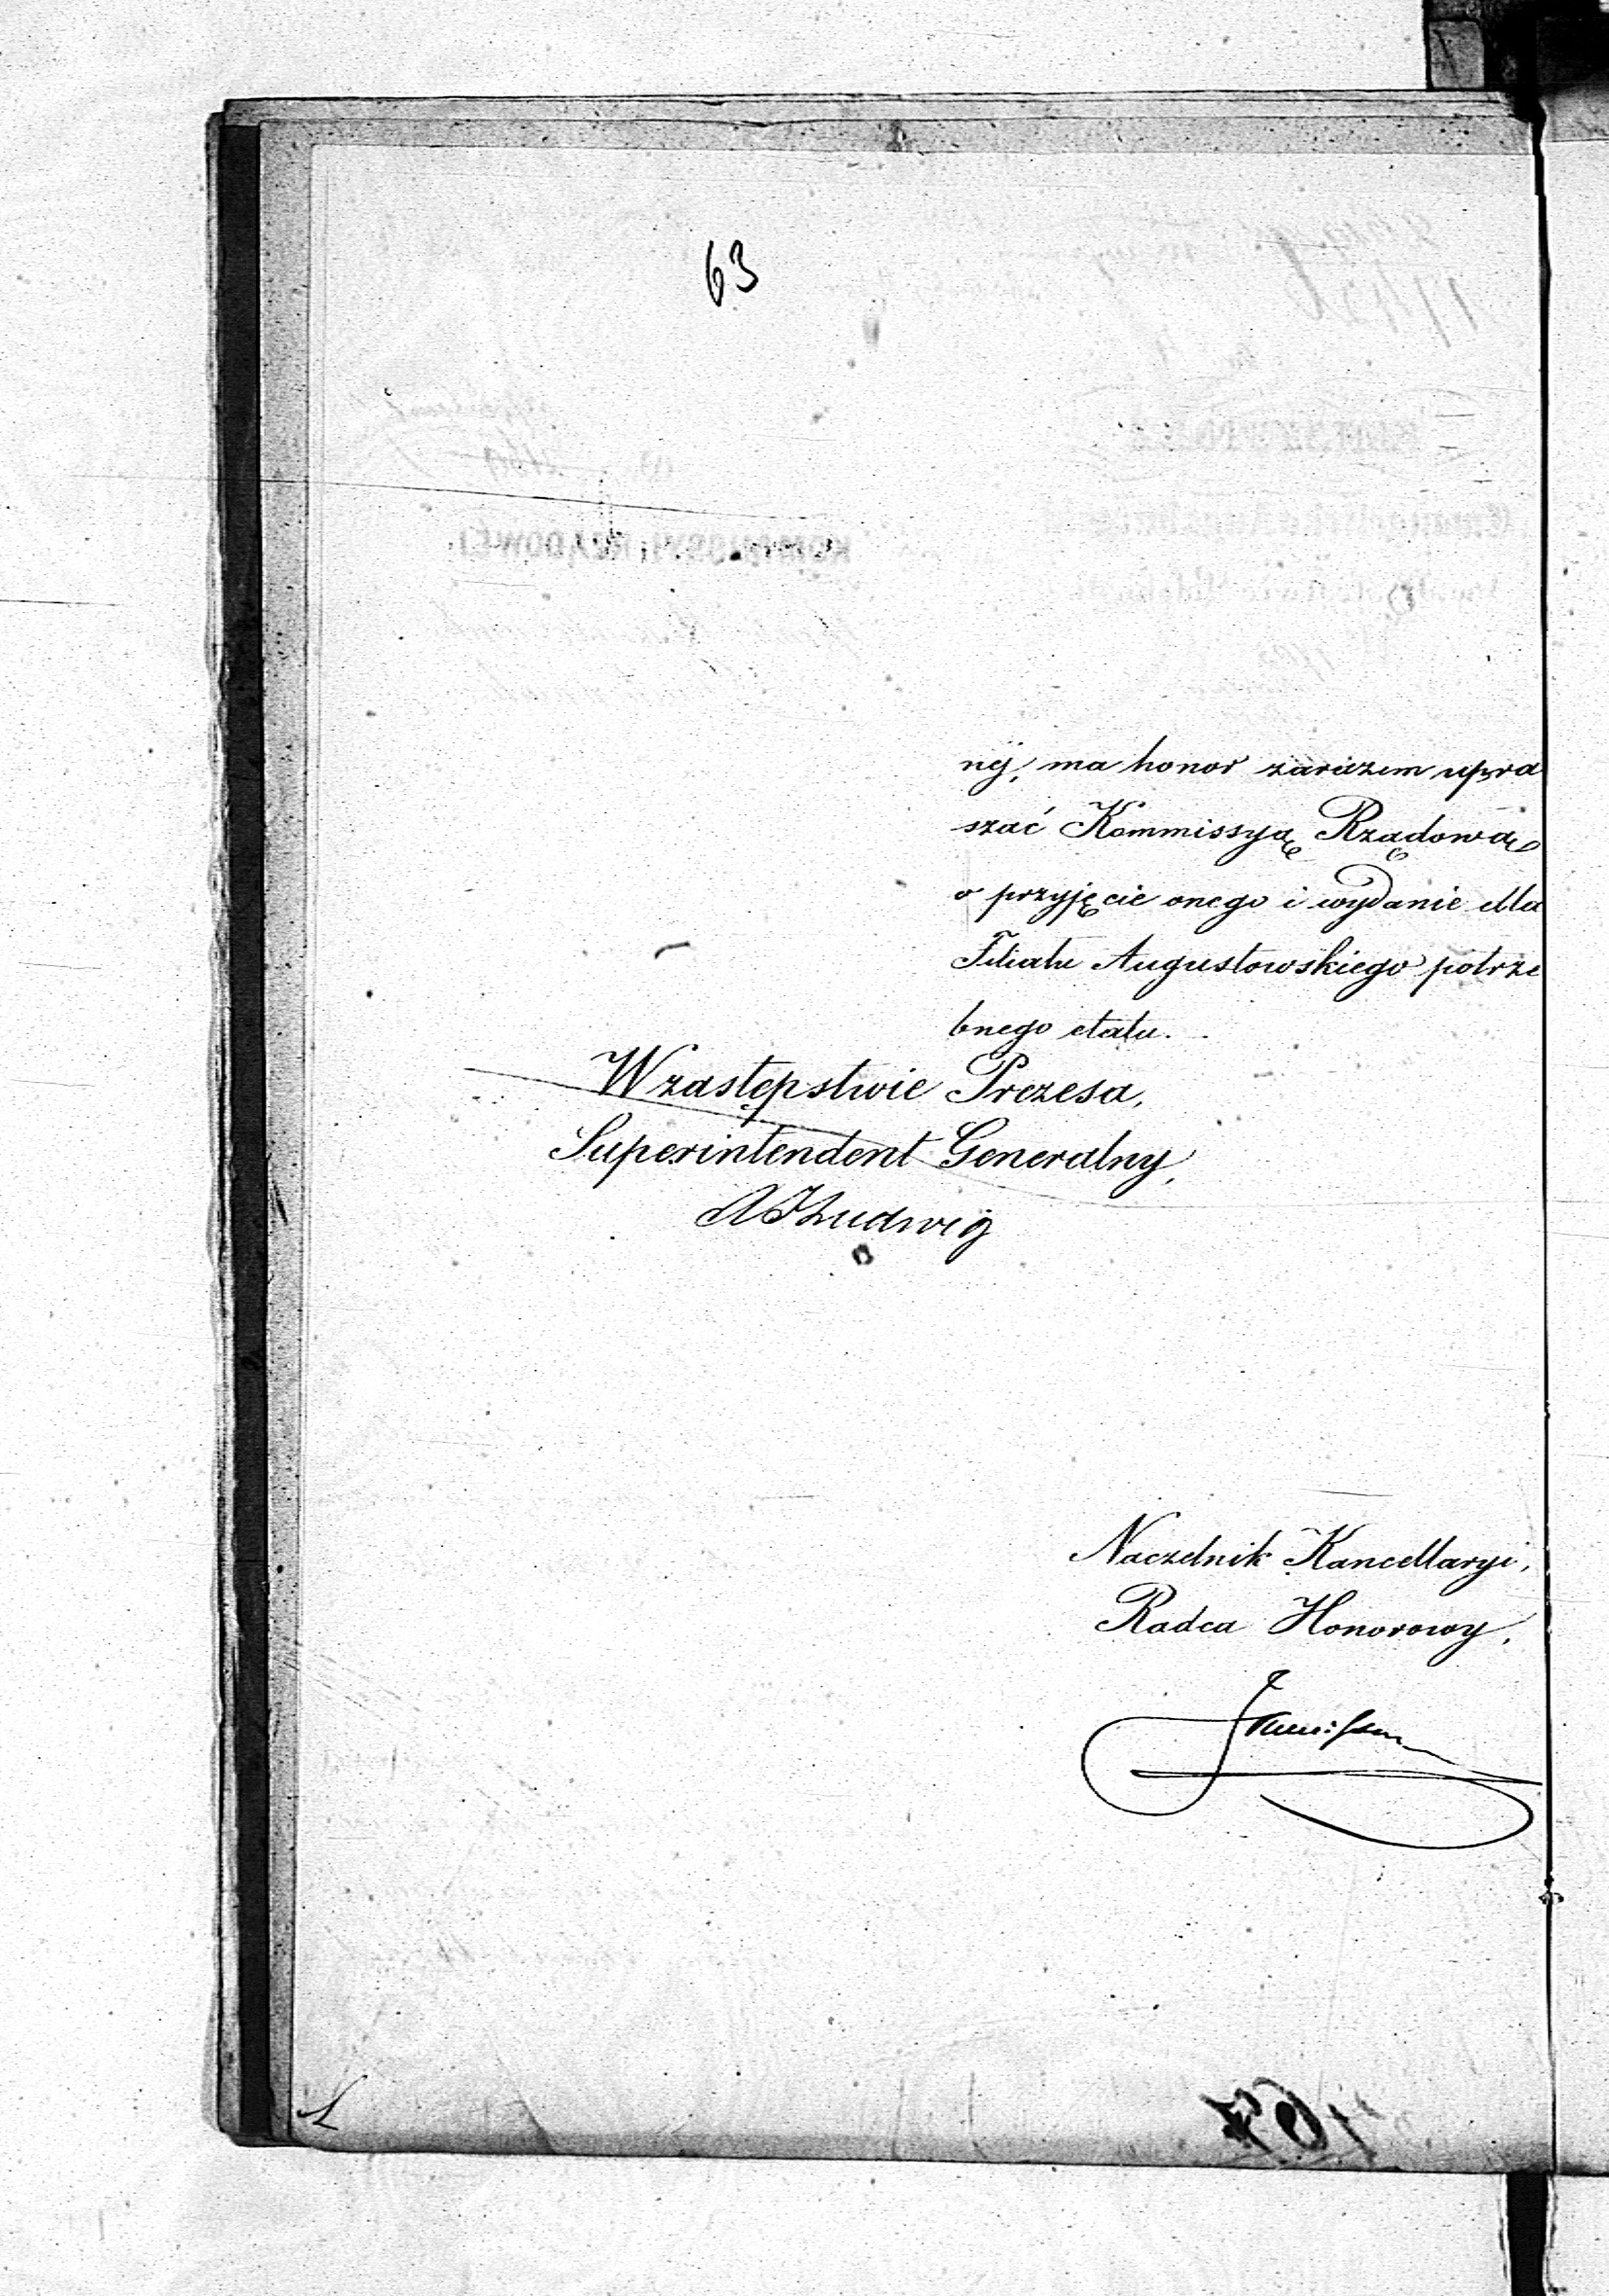 63
nej, ma honor zarazem upra
szać Kommissyą Rządową
o przyjęcie onego i wydanie dla
Filiału Augustowskiego potrze
bnego etatu.
W zastępstwie Prezesa,
Superintendent Generalny,
Ludwig
Naczelnik Kancellaryi,
Radca Honorowy,